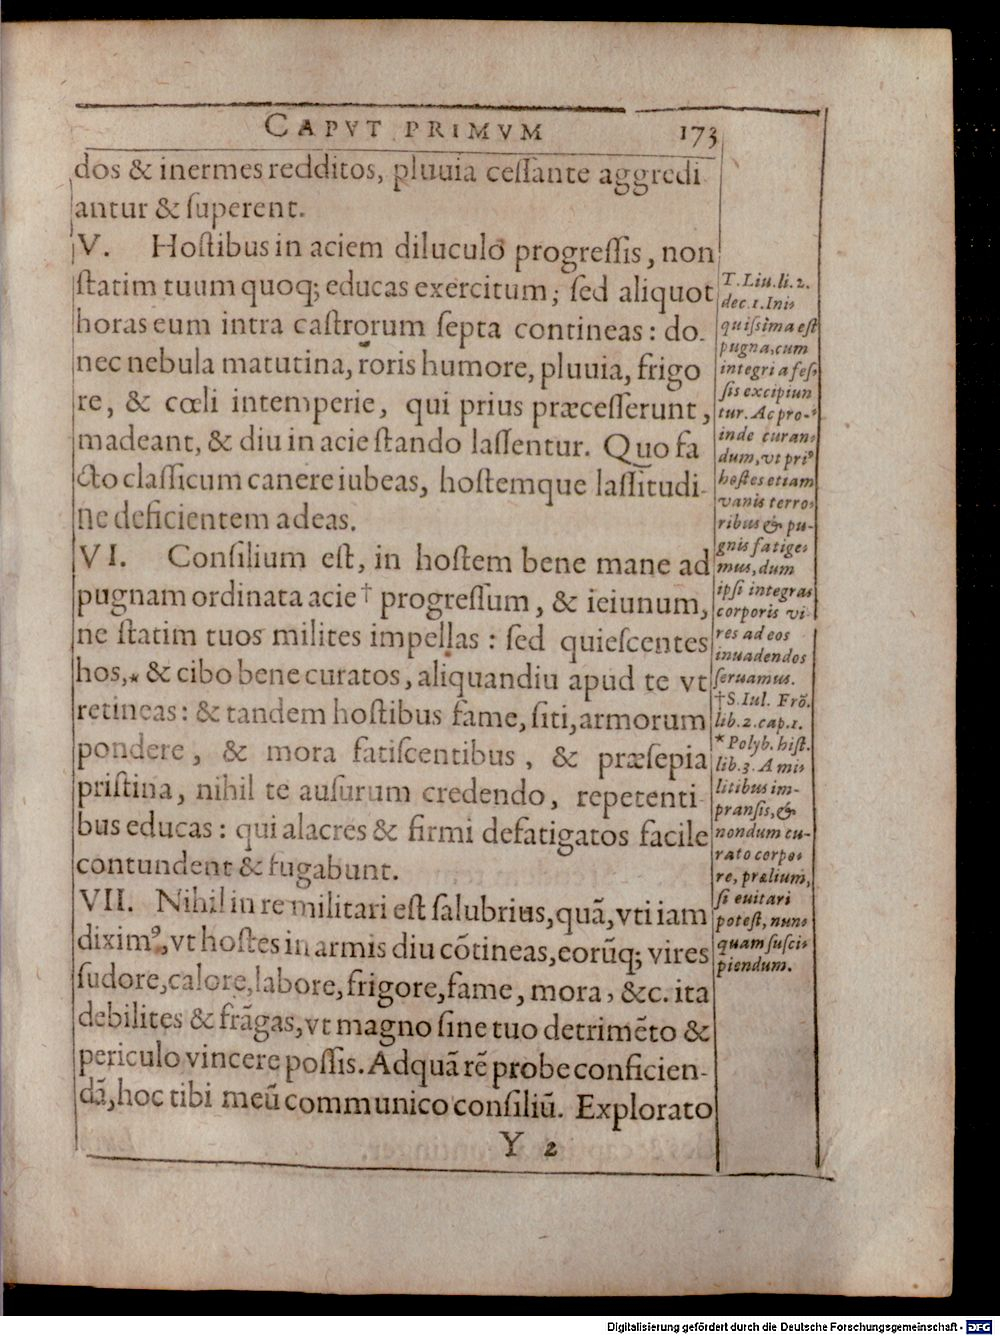 CAPVT PRIMVM 173
dos & inermes redditos, pluuia ceſſante aggredi
antur & ſuperent.
V. Hoſtibus in aciem diluculo progreſſis, non
ſtatim tuum quoq; educas exercitum; ſed aliquot
horas eum intra caſtrorum ſepta contineas: do-
nec nebula matutina, roris humore, pluuia, frigo
re, & cœli intemperie, qui prius præceſſerunt,
madeant, & diu in acie ſtando laſſentur. Quo fa
cto claſſicum canere iubeas, hoſtemque laſſitudi-
ne deficientem adeas.
VI. Conſilium eſt, in hoſtem bene mane ad
pugnam ordinata acie † progreſſum, & ieiunum,
ne ſtatim tuos milites impellas: ſed quieſcentes
hos,* & cibo bene curatos, aliquandiu apud te vt
retineas: & tandem hoſtibus fame, ſiti, armorum
pondere, & mora fatiſcentibus, & præſepia
priſtina, nihil te auſurum credendo, repetenti
bus educas: qui alacres & firmi defatigatos facile
contundent & fugabunt.
VII. Nihil in re militari eſt ſalubrius, quã, vti iam
diximꝰ, vt hoſtes in armis diu cõtineas, eorũq; vires
ſudore, calore, labore, frigore, fame, mora, &c. ita
debilites & frãgas, vt magno ſine tuo detrimẽto &
periculo vincere poſſis. Ad quã rẽ probe conficien-
dã, hoc tibi meũ communico conſiliũ. Explorato
Y 2
T. Liu. li. 2.
dec. 1. Ini-
quiſsima eſt
pugna, cum
integri a feſ-
ſis excipiun
tur. Ac pro-
inde curan-
dum, vt priꝰ
hoſtes etiam
vanis terro-
ribus & pu-
gnis fatige-
mus, dum
ipſi integras
corporis vi-
res ad eos
inuadendos
ſeruamus.
† S. Iul. Frõ.
lib. 2. cap. 1.
* Polyb. hiſt.
lib. 3. A mi-
litibus im-
pranſis, &
nondum cu-
rato corpo-
re, prælium,
ſi euitari
poteſt, nun-
quam ſuſci-
piendum.
Digitalisierung gefördert durch die Deutsche Forschungsgemeinschaft - DFG